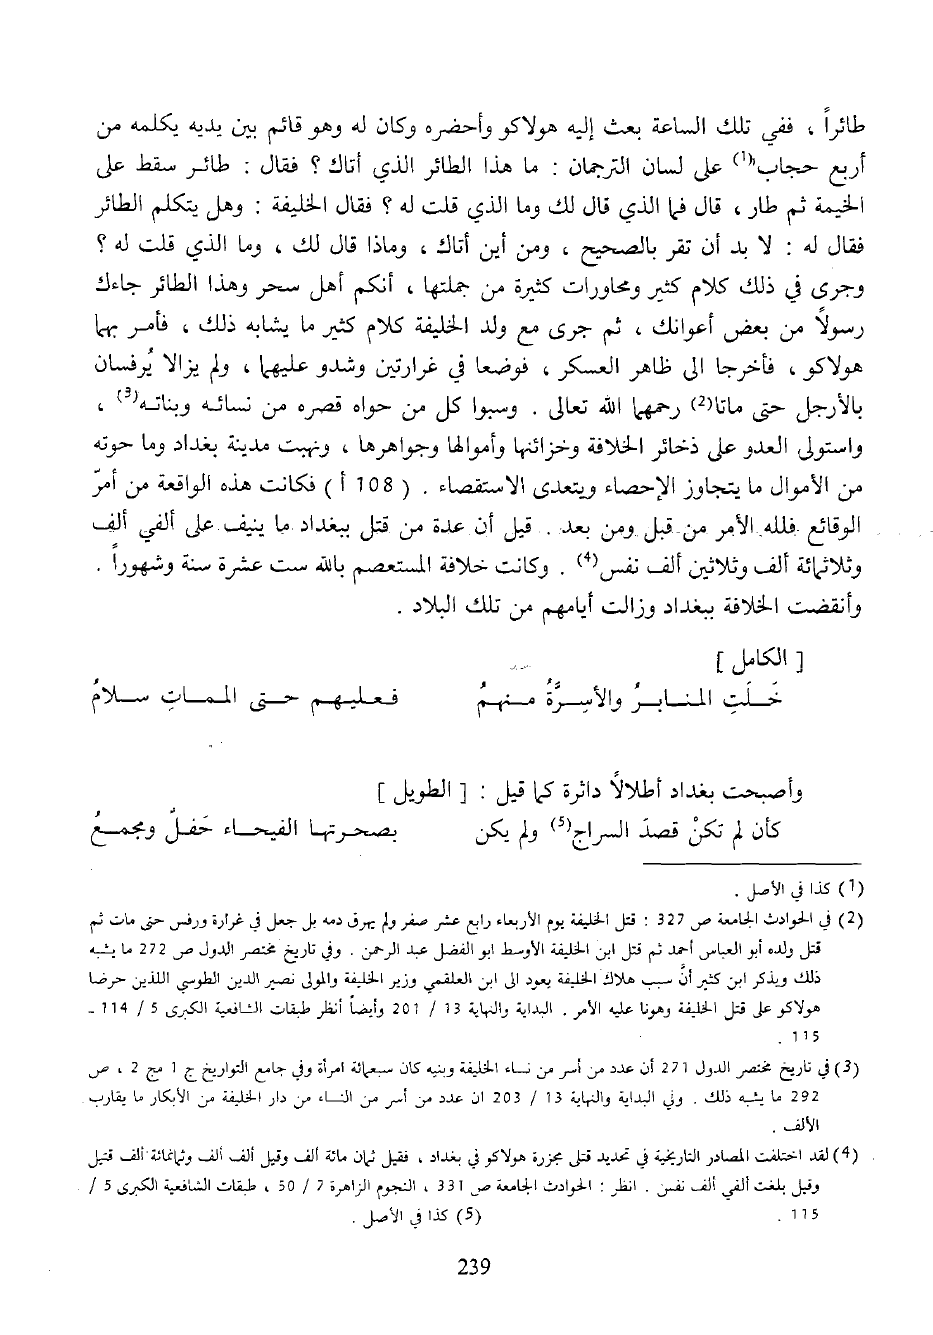 طائراً ، ففي تلك الساعة بعث إليه هولاكو وأحضره وكان له وهو قائم بين يديه يكلمه من
أربع حجاب(1) على لسان الترجمان : ما هذا الطائر الذي أتاك ؟ فقال : طائر سقط على
الخيمة ثم طار ، قال فما الذي قال لك وما الذي قلت له ؟ فقال الخليفة : وهل يتكلم الطائر
فقال له : لا بد أن تقر بالصحيح ، ومن أين أتاك ، وماذا قال لك ، وما الذي قلت له ؟
وجرى في ذلك كلام كثير ومحاورات كثيرة من جملتها ، أنكم أهل سحر وهذا الطائر جاءك
رسولاً من بعض أعوانك ، ثم جرى مع ولد الخليفة كلام كثير ما يشابه ذلك ، فأمر بهما
هولاكو ، فأخرجا الى ظاهر العسكر ، فوضعا في غرارتين وشدو عليهما ، ولم يزالا يُرفسان
بالأرجل حتى ماتا(2) رحمهما الله تعالى . وسبوا كل من حواه قصره من نسائه وبناته(3) ،
واستولى العدو على ذخائر الخلافة وخزائنها وأموالها وجواهرها ، ونهبت مدينة بغداد وما حوته
من الأموال ما يتجاوز الإحصاء ويتعدى الاستقصاء . ( 108 أ ) فكانت هذه الواقعة من أمرّ
الوقائع فلله الأمر من قبل ومن بعد . قيل أن عدة من قتل ببغداد ما ينيف على ألفي ألف
وثلاثمائة ألف وثلاثين ألف نفس(4) . وكانت خلافة المستعصم بالله ست عشرة سنة وشهوراً .
وأنقضت الخلافة ببغداد وزالت أيامهم من تلك البلاد .
[ الكامل ]
خَلَتِ المنابرُ والأسِرَّةُ منهمُ فعليهم حتى المماتِ سلامُ
وأصبحت بغداد أطلالاً دائرة كما قيل : [ الطويل ]
كأن لم تكنْ قصدَ السراج(5) ولم يكن بصحرتها الفيحاء حَفلٌ ومجمعُ
(1) كذا في الأصل .
(2) في الحوادث الجامعة ص 327 : قتل الخليفة يوم الأربعاء رابع عشر صفر ولم يهرق دمه بل جعل في غرارة ورفس حتى مات ثم
قتل ولده أبو العباس أحمد ثم قتل ابن الخليفة الأوسط ابو الفضل عبد الرحمن . وفي تاريخ مختصر الدول ص 272 ما يشبه
ذلك ويذكر ابن كثير أنَّ سبب هلاك الخليفة يعود الى ابن العلقمي وزير الخليفة والمولى نصير الدين الطوسي اللذين حرضا
هولاكو على قتل الخليفة وهونا عليه الأمر . البداية والنهاية 13 / 201 وأيضاً أنظر طبقات الشافعية الكبرى 5 / 114 -
115 .
(3) في تاريخ مختصر الدول 271 أن عدد من أسر من نساء الخليفة وبنيه كان سبعمائة امرأة وفي جامع التواريخ ج 1 مج 2 ، ص
292 ما يشبه ذلك . وفي البداية والنهاية 13 / 203 ان عدد من أسر من النساء من دار الخليفة من الأبكار ما يقارب
الألف .
(4) لقد اختلفت المصادر التاريخية في تحديد قتلى مجزرة هولاكو في بغداد ، فقيل ثمان مائة ألف وقيل ألف ألف وثمانمائة ألف قتيل
وقيل بلغت ألفي ألف نفس . انظر : الحوادث الجامعة ص 331 ، النجوم الزاهرة 7 / 50 ، طبقات الشافعية الكبرى 5 /
115 . (5) كذا في الأصل .
239